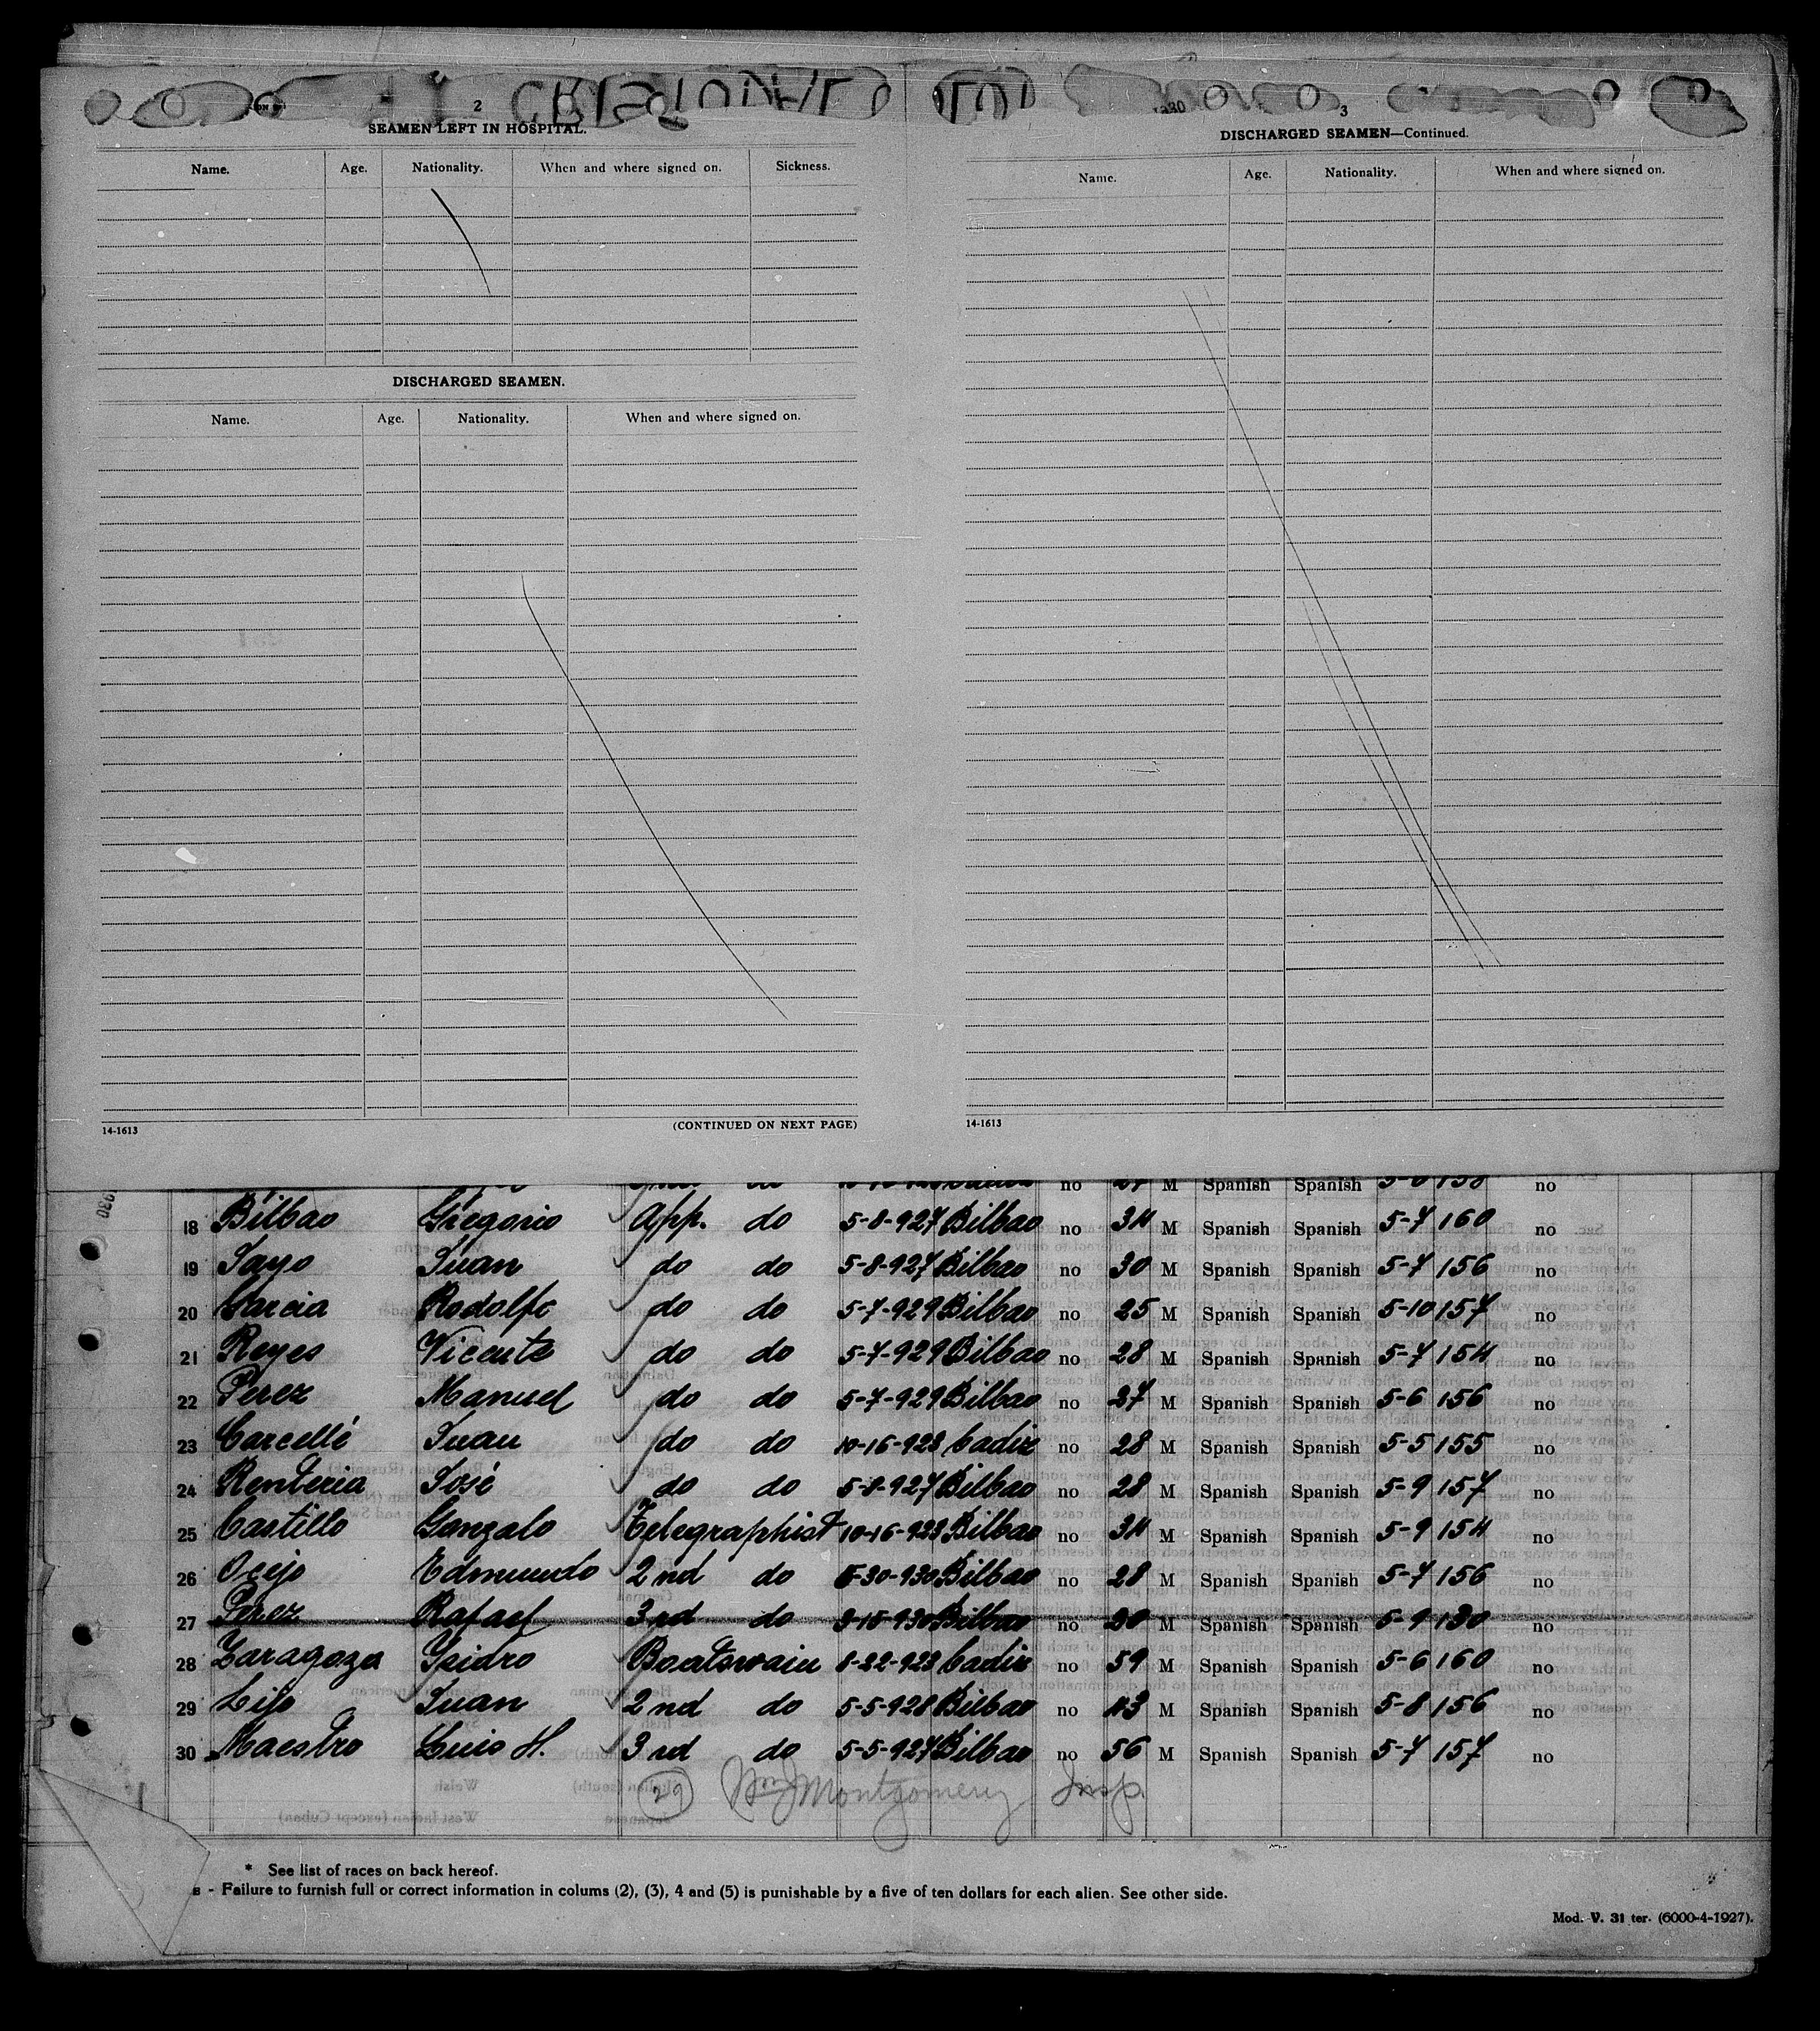 2
SEAMEN LEFT IN HOSPITAL.
Name. Age. Nationality. When and where signed on. Sickness.
DISCHARGED SEAMEN.
Name. Age. Nationality. When and where signed on.
14-1613 (CONTINUED ON NEXT PAGE)
3
DISCHARGED SEAMEN—Continued.
Name. Age. Nationality. When and where signed on.
14-1613
no 27 M Spanish Spanish no
18 Bilbao Gregorio App. do 5-8-927 Bilbao no 34 M Spanish Spanish 5-7 160 no
19 Sayo Juan do do 5-8-927 Bilbao no 30 M Spanish Spanish 5-7 156 no
20 Garcia Rodolfo do do 5-7-929 Bilbao no 25 M Spanish Spanish 5-10 157 no
21 Reyes Vicente do do 5-7-929 Bilbao no 28 M Spanish Spanish 5-7 154 no
22 Perez Manuel do do 5-7-929 Bilbao no 27 M Spanish Spanish 5-6 156 no
23 Carcellé Juan do do 10-16-928 Cadiz no 28 M Spanish Spanish 5-5 155 no
24 Renteria José do do 5-8-927 Bilbao no 28 M Spanish Spanish 5-9 157 no
25 Castillo Gonzalo Telegraphist 10-16-928 Bilbao no 34 M Spanish Spanish 5-9 154 no
26 Ocejo Edmundo 2nd do 5-30-930 Bilbao no 28 M Spanish Spanish 5-7 156 no
27 Perez Rafael 3rd do 3-15-930 Bilbao no 20 M Spanish Spanish 5-9 130 no
28 Zaragoza Ysidro Boatswain 8-22-923 Cadiz no 59 M Spanish Spanish 5-6 160 no
29 Lijo Juan 2nd do 5-5-928 Bilbao no 43 M Spanish Spanish 5-8 156 no
30 Maestro Luis H. 3rd do 5-5-927 Bilbao no 56 M Spanish Spanish 5-7 157 no
29 Wm J Montgomery Insp.
* See list of races on back hereof.
B - Failure to furnish full or correct information in colums (2), (3), 4 and (5) is punishable by a five of ten dollars for each alien. See other side.
Mod. V. 31 ter. (6000-4-1927).